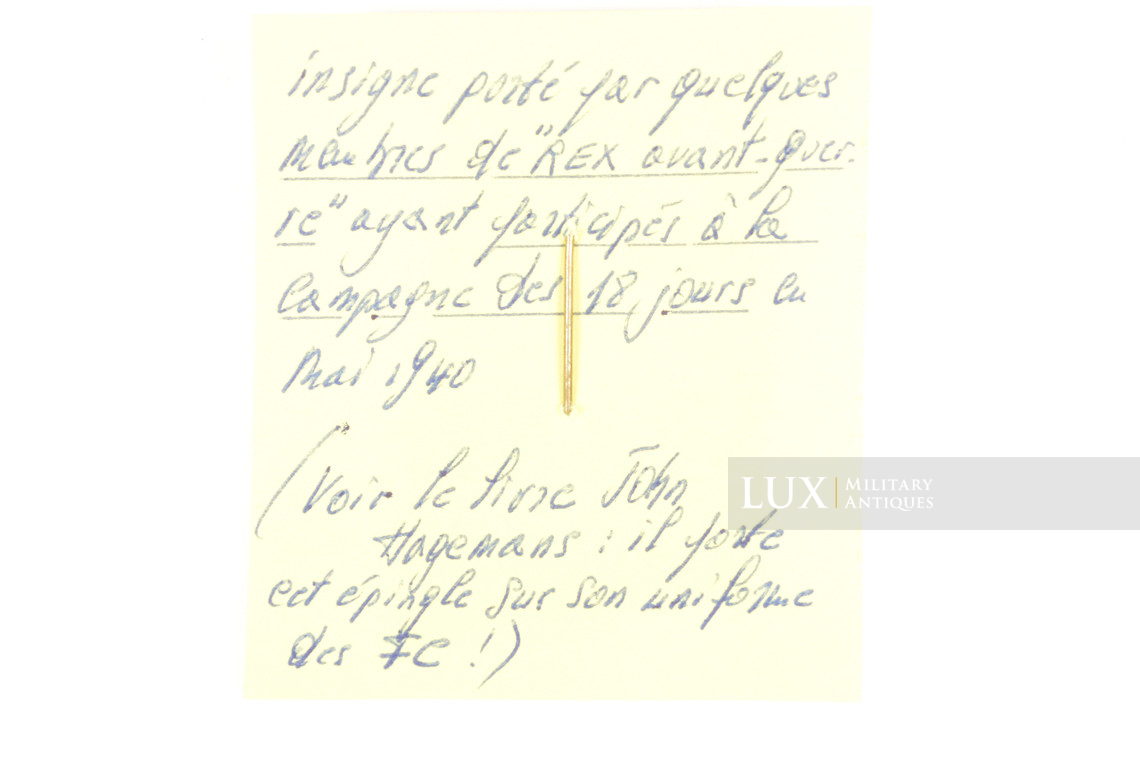 insigne porté par quelques
membres de "REX avant-guer-
re" ayant participés à la
campagne des 18 jours en
mai 1940
(Voir le livre John
Hagemans : il porte
cet épingle sur son uniforme
des FC !)
LUX MILITARY
ANTIQUES